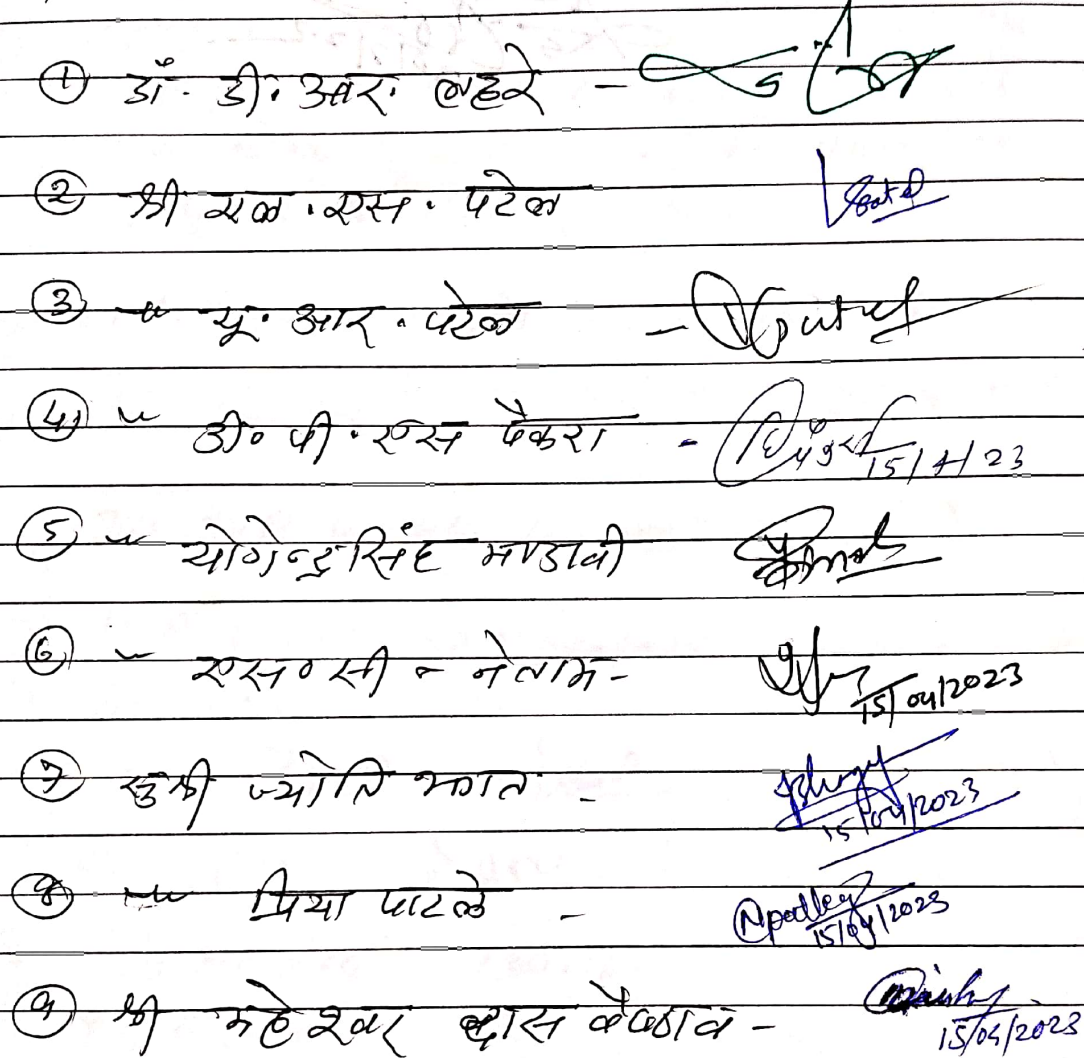 ① डॉ. डी. आर. लहरे -
② श्री एल. एस. पटेल Patel
③ " यू. आर. पटेल - Patel
④ " डी० पी. एस पैकरा - 15/4/23
⑤ " योगेन्द्र सिंह मण्डावी
⑥ " एस० सी - नेताम - 15/04/2023
⑦ सुश्री ज्योति - 15/04/2023
⑧ " प्रिया पाटले - 15/04/2023
⑨ श्री महेश्वर दास वैष्णव - 15/04/2023